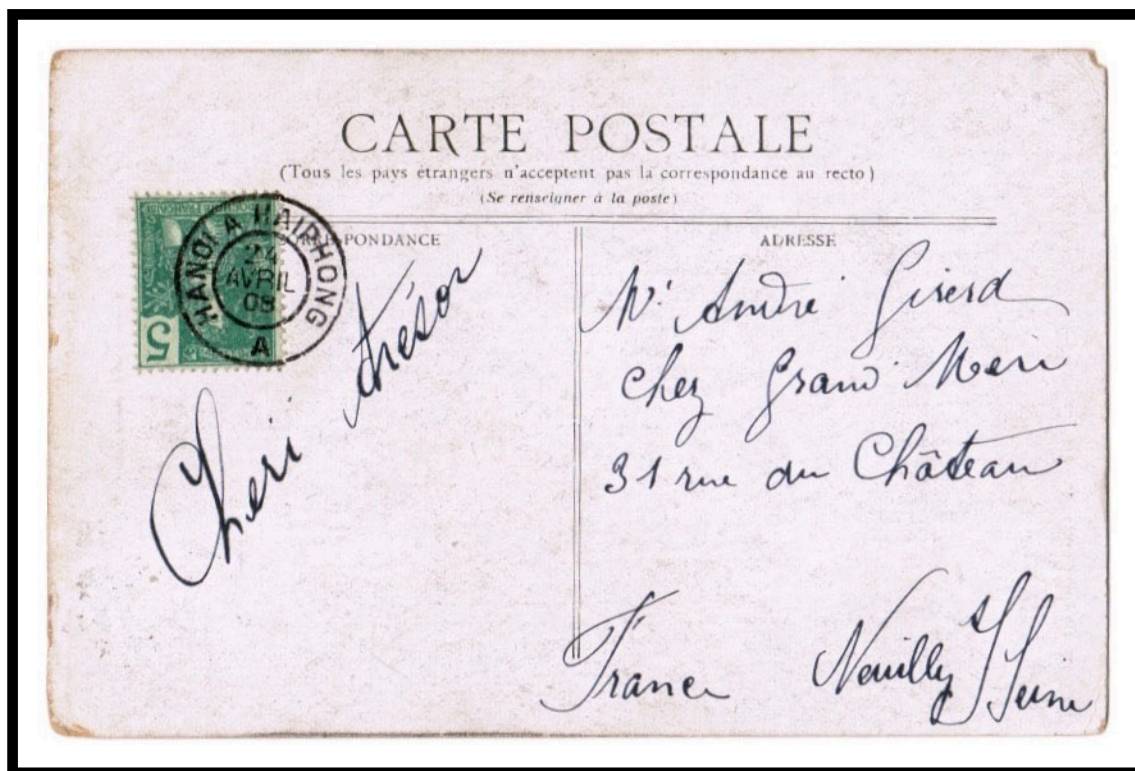 CARTE POSTALE
(Tous les pays étrangers n'acceptent pas la correspondance au recto)
(Se renseigner à la poste)
CORRESPONDANCE
ADRESSE
HANOI A HAIPHONG
AVRIL
A
5
Cheri trésor
Mr André Girerd
Chez Grand Mere
31 rue du Château
Neuilly s/ Seine
France